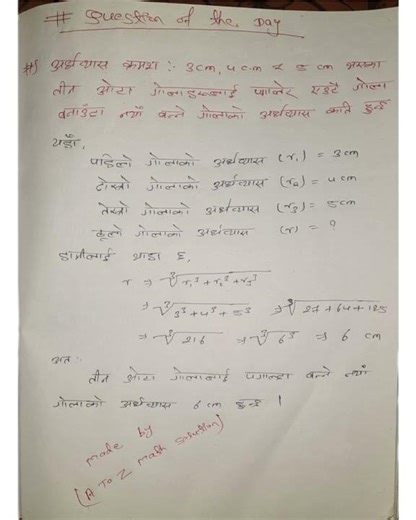 # Question of the Day
#) अर्धव्यास क्रमशः 3cm, 4cm र 5cm भएका
तीन ओटा गोलाहरूलाई पगालेर एउटै गोला
बनाउँदा नयाँ बन्ने गोलाको अर्धव्यास कति हुन्छ
यहाँ,
पहिलो गोलाको अर्धव्यास (r₁) = 3cm
दोस्रो गोलाको अर्धव्यास (r₂) = 4cm
तेस्रो गोलाको अर्धव्यास (r₃) = 5cm
ठूलो गोलाको अर्धव्यास (r) = ?
हामीलाई थाहा छ,
r ⇒ ∛r₁³ + r₂³ + r₃³
⇒ ∛3³ + 4³ + 5³ ⇒ ∛27 + 64 + 125
⇒ ∛216 ⇒ ∛6³ ⇒ 6 cm
अतः
तीन ओटा गोलालाई पगाल्दा बन्ने नयाँ
गोलाको अर्धव्यास 6cm हुन्छ ।
made by
(A To Z math solution)